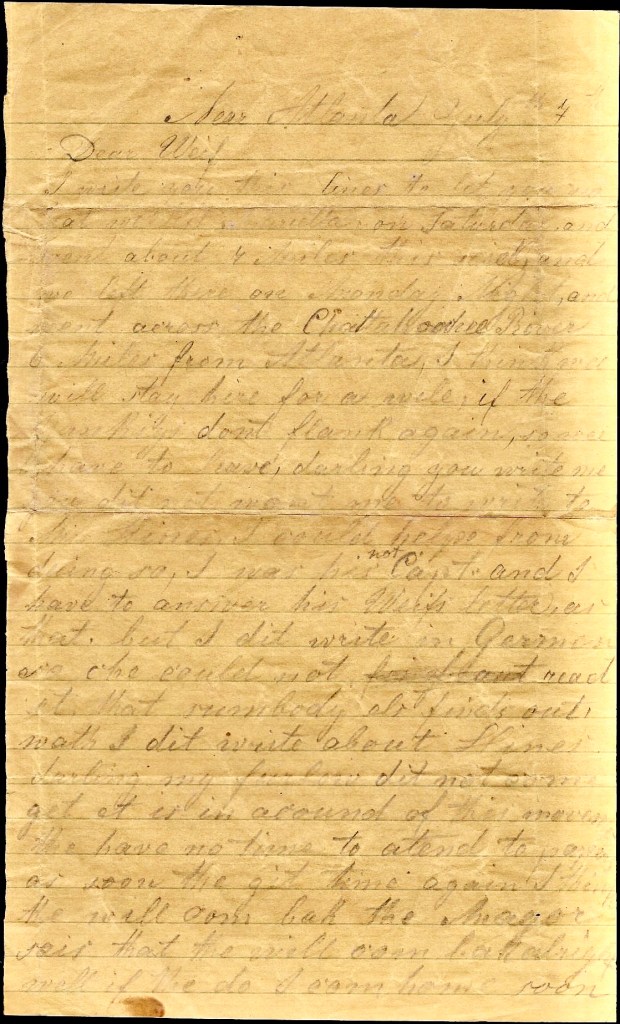 Near Atlanta July th 7
Dear Weif
I write you this lines to let you
that we left Marietta on Saturday, and
went about 4 Miles this side, and
we left there on Monday Night, and
went across the ChattaHoochee River
6 Miles from Atlanta, I think we
will stay hire for a wile, if the
Yankiys dont flank again, so wee
have to leave, darling you write me
you dit not want me to write to
Mrs Hines I could helpe from
diing so, I was his not Capt. and I
have to answer his Weifs letter, as
that. but I dit write in German
so che could not read
it that sumbody els finds out,
wath I dit write about Hines
darling my furlow dit not come
yet it is in acound of this movem
the have no time to atend to
as soon the git time again I think
the will com bak the Magor
seis that the will com bak alrigh
well if the do I com home soon